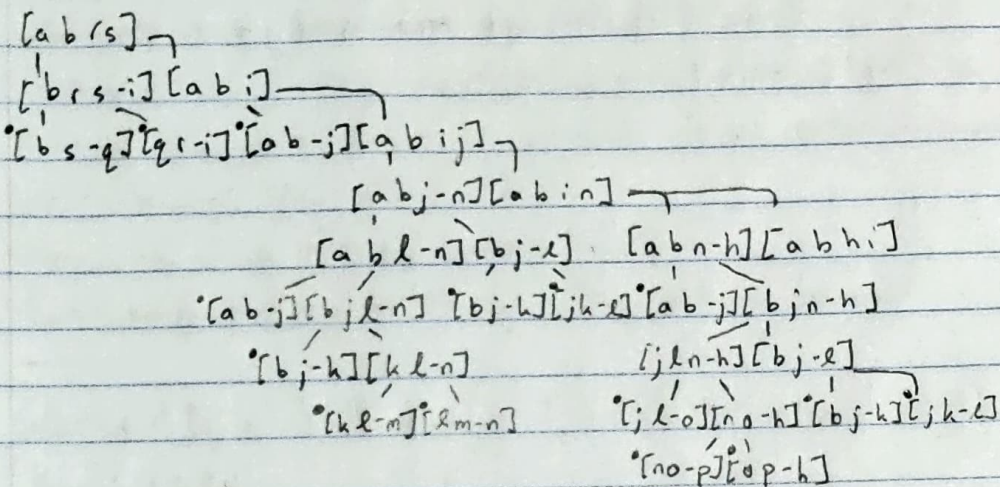 [a b r s]
[b r s - i] [a b i]
•[b s - q] •[q r - i] •[a b - j] [a b i j]
[a b j - n] [a b i n]
[a b l - n] [b j - l] [a b n - h] [a b h i]
•[a b - j] [b j l - n] •[b j - k] •[j k - l] •[a b - j] [b j n - h]
•[b j - k] [k l - n] [j l n - h] [b j - l]
•[k l - m] •[l m - n] •[j l - o] [n o - h] •[b j - k] •[j k - l]
•[n o - p] •[o p - h]